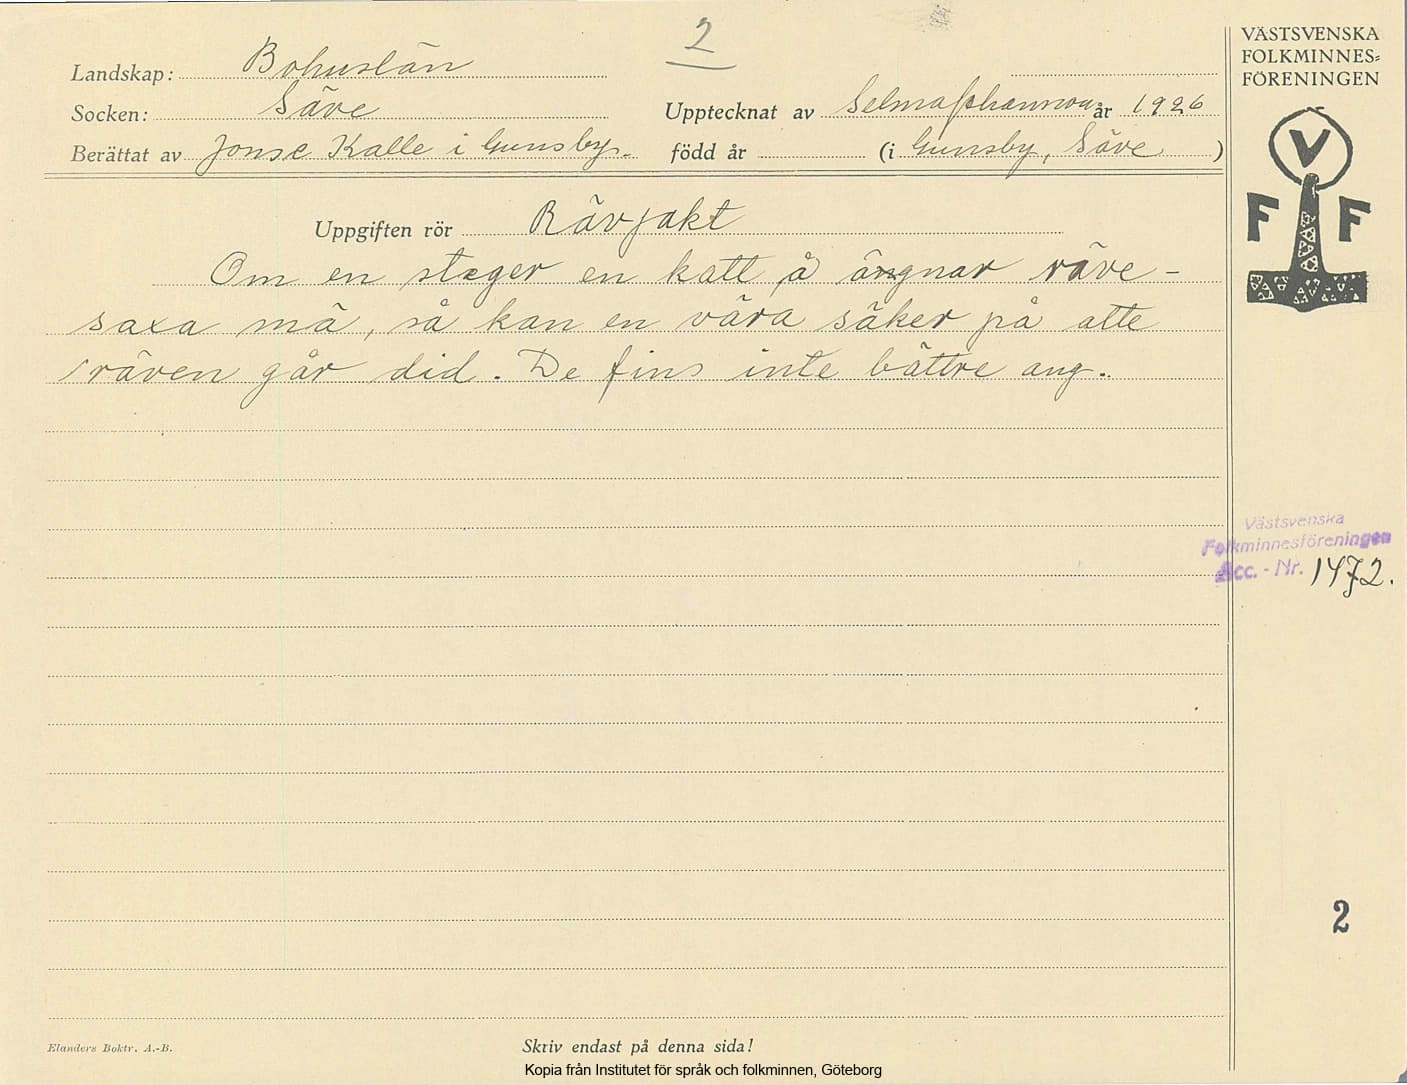 2
VÄSTSVENSKA
FOLKMINNES=
FÖRENINGEN
Landskap: Bohuslän
Socken: Säve
Upptecknat av Selma Johannson år 1926
Berättat av Jonse Kalle i Gunsby. född år (i Gunsby, Säve )
V
F F
Uppgiften rör Rävjakt
Om en steger en katt å ängnar räve-
saxa mä, så kan en vära säker på atte
räven går did. De fins inte bättre ang.
Västsvenska
Folkminnesföreningen
Acc. - Nr. 1472.
2
Elanders Boktr. A.-B.
Skriv endast på denna sida!
Kopia från Institutet för språk och folkminnen, Göteborg